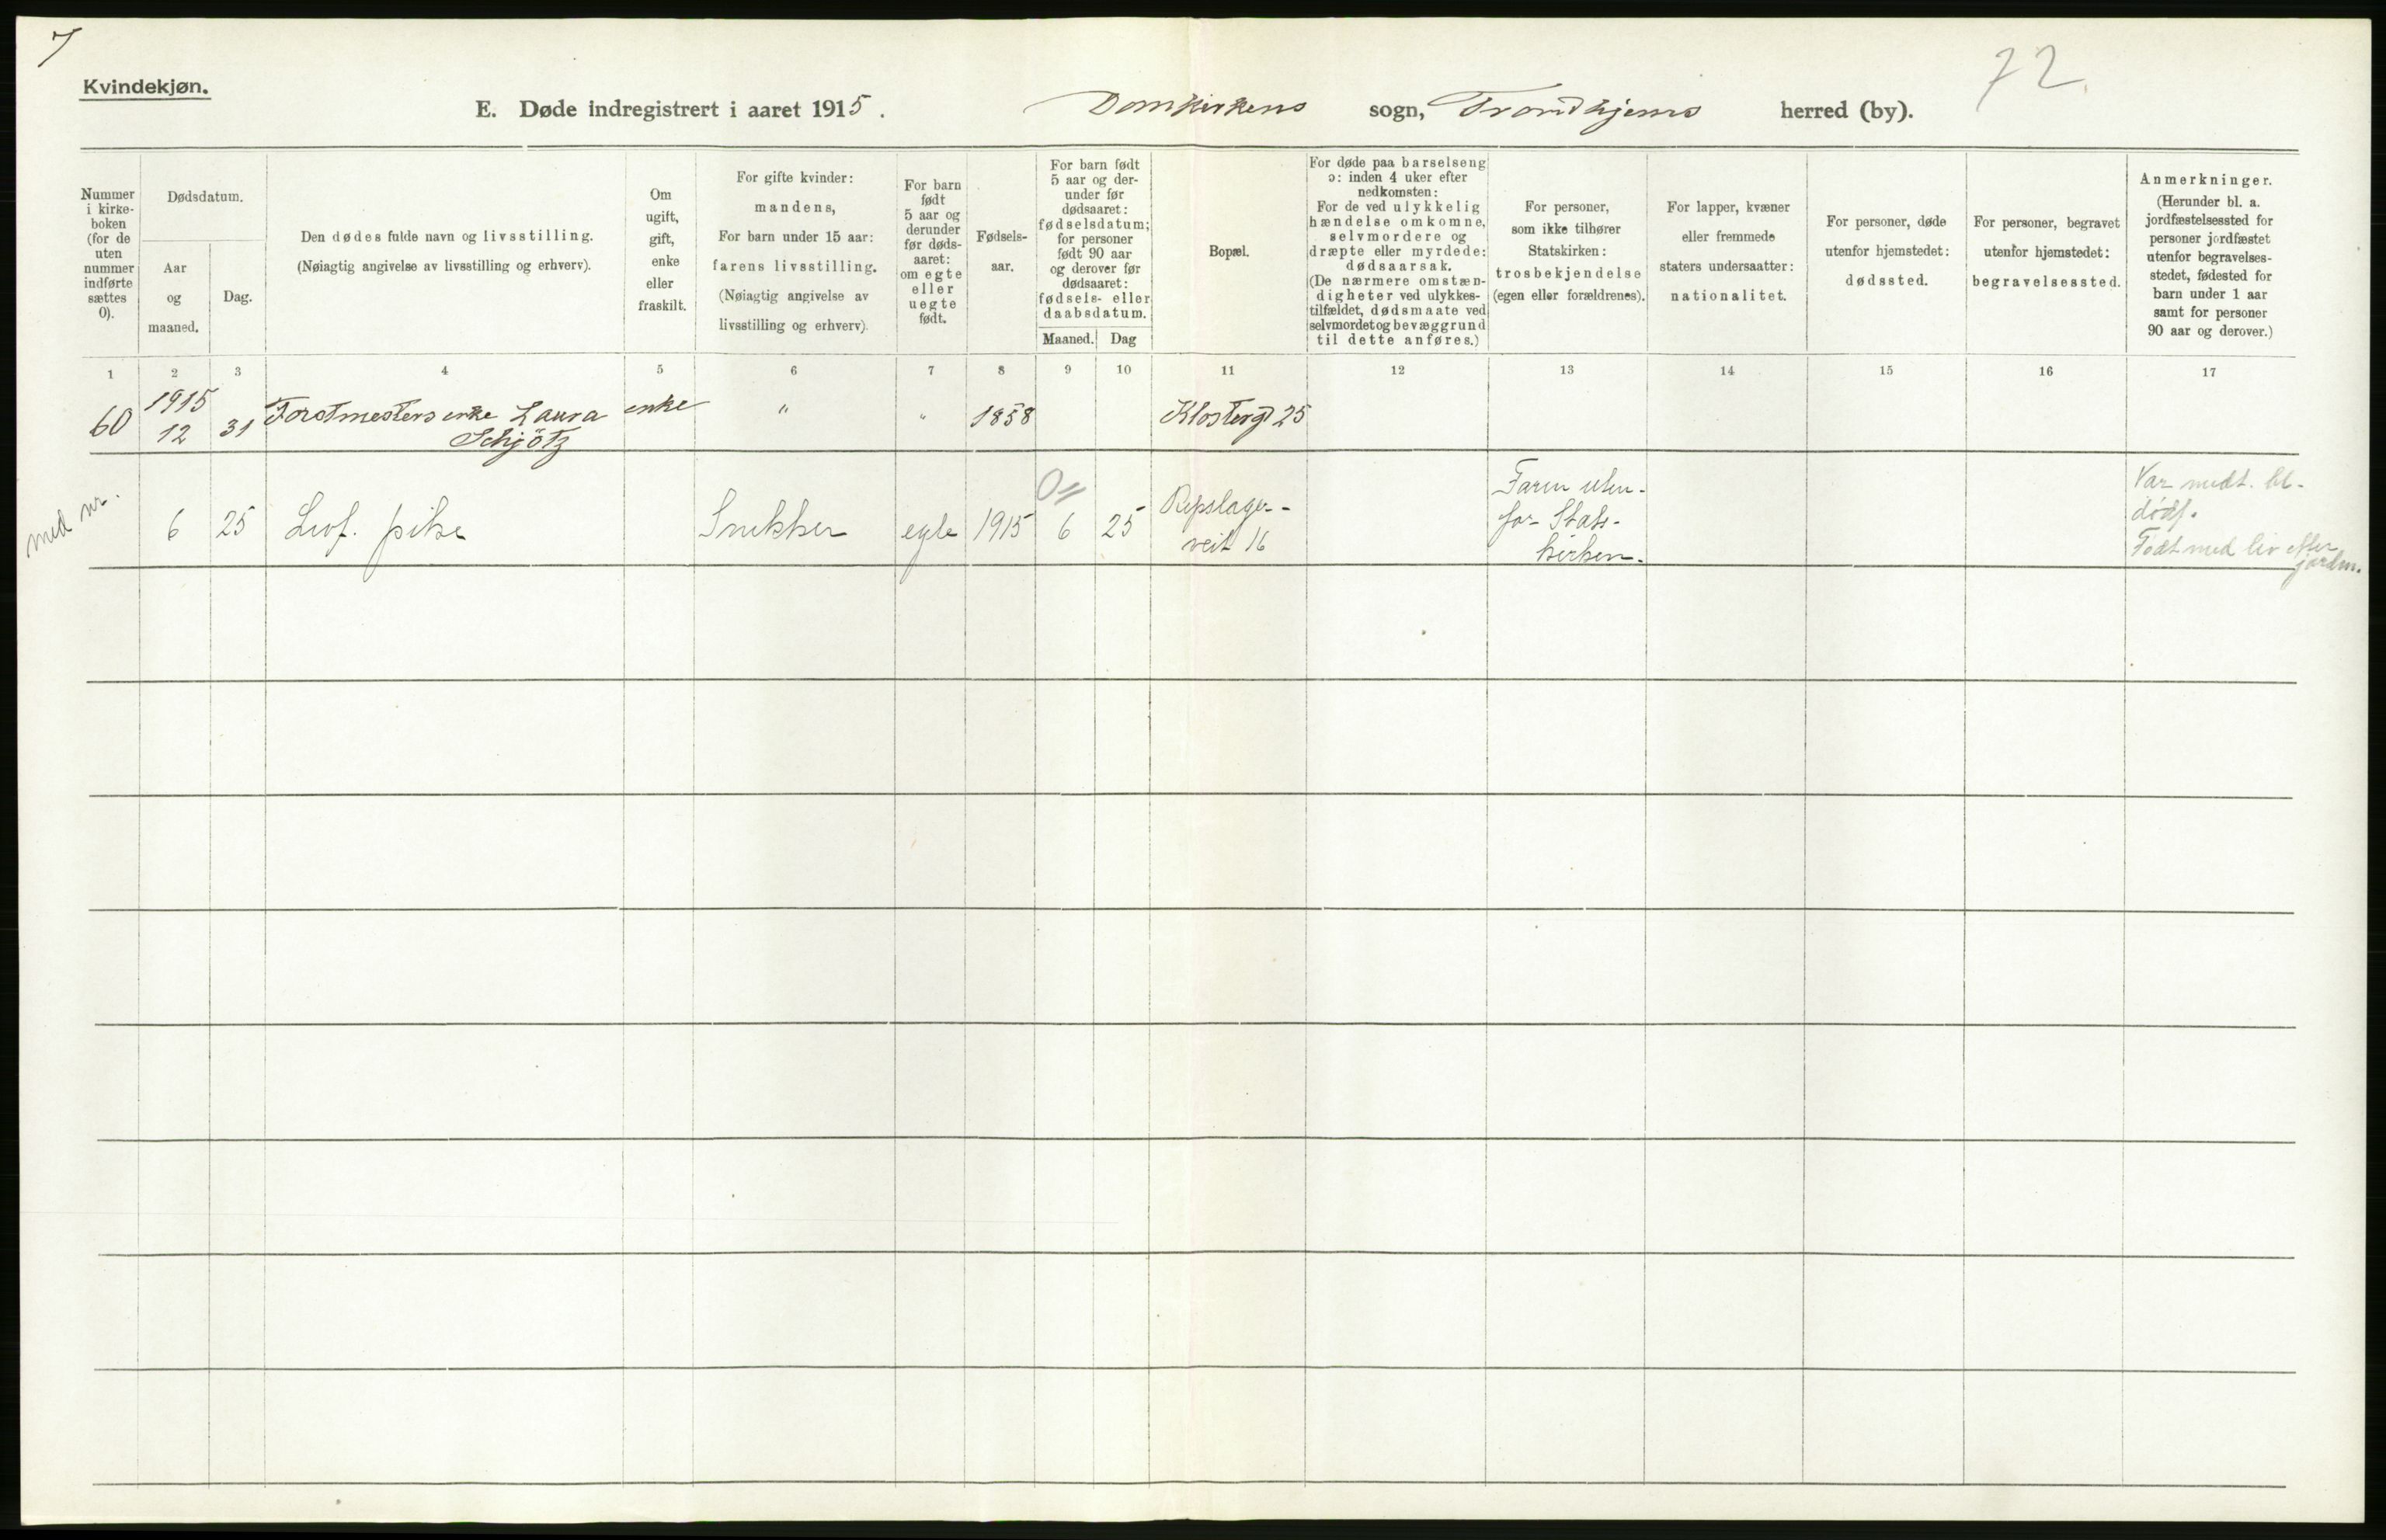 7
72
Kvindekjøn.
E. Døde indregistrert i aaret 1915. Domkirkens sogn, Trondhjems herred (by).
Nummer
i kirke-
boken
(for de
uten
nummer
indførte
sættes
0).
Dødsdatum.
Aar
og
maaned.
Dag.
Den dødes fulde navn og livsstilling.
(Nøiagtig angivelse av livsstilling og erhverv).
Om
ugift,
gift,
enke
eller
fraskilt.
For gifte kvinder:
mandens,
For barn under 15 aar:
farens livsstilling.
(Nøiagtig angivelse av
livsstilling og erhverv).
For barn
født
5 aar og
derunder
før døds-
aaret:
om egte
eller
uegte
født.
Fødsels-
aar.
For barn født
5 aar og der-
under før
dødsaaret:
fødselsdatum;
for personer
født 90 aar
og derover før
dødsaaret:
fødsels- eller
daabsdatum.
Maaned. Dag
Bopæl.
For døde paa barselseng
ɔ: inden 4 uker efter
nedkomsten:
For de ved ulykkelig
hændelse omkomne,
selvmordere og
dræpte eller myrdede:
dødsaarsak.
(De nærmere omstæn-
digheter ved ulykkes-
tilfældet, dødsmaate ved
selvmordet og bevæggrund
til dette anføres.)
For personer,
som ikke tilhører
Statskirken:
trosbekjendelse
(egen eller forældrenes).
For lapper, kvæner
eller fremmede
staters undersaatter:
nationalitet.
For personer, døde
utenfor hjemstedet:
dødssted.
For personer, begravet
utenfor hjemstedet:
begravelsessted.
Anmerkninger.
(Herunder bl. a.
jordfæstelsessted for
personer jordfæstet
utenfor begravelses-
stedet, fødested for
barn under 1 aar
samt for personer
90 aar og derover.)
1 2 3 4 5 6 7 8 9 10 11 12 13 14 15 16 17
60
1915
12
31
Forstmesters enke Laura
Schjötz
enke
"
"
1858
Klostergt 25
6
25
pike
Snekker
egte
1915
0
6
25
Repslager-
veit 16
Faren uten-
for Stats-
kirken.
Var
dødf.
Født med liv efter
jordm.